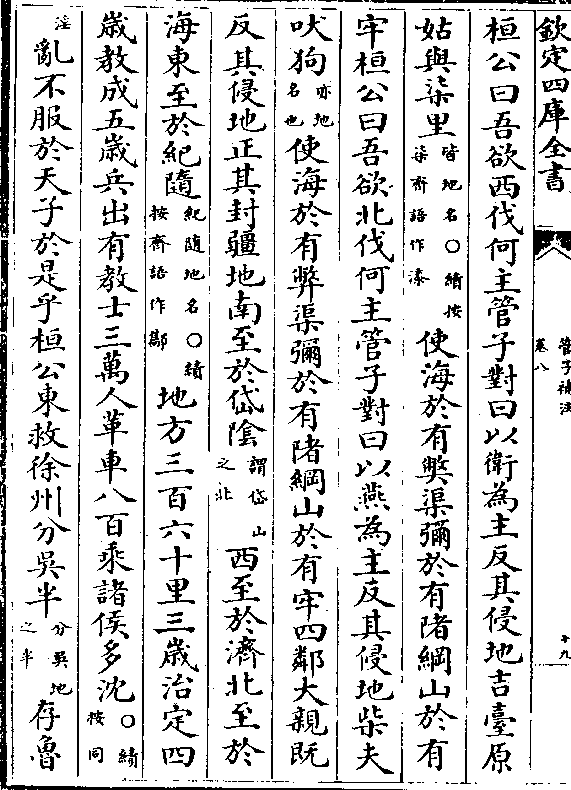 欽定四庫全書
管子補注
卷八
十九
桓公曰吾欲西伐何主管子對曰以衛為主反其侵地吉臺原
姑與柒里皆地名○績按柒齊語作漆使海於有獘渠彌於有陼綱山於有
牢桓公曰吾欲北伐何主管子對曰以燕為主反其侵地柴夫
吠狗亦地名也使海於有弊渠彌於有陼綱山於有牢四鄰大親既
反其侵地正其封疆地南至於岱隂謂岱山之北西至於濟北至於
海東至於紀隨紀隨地名○績按齊語作酅地方三百六十里三嵗治定四
嵗教成五嵗兵出有教士三萬人革車八百乘諸侯多沈○績按同淫
亂不服於天子於是乎桓公東救徐州分吳半分吳地之半存魯